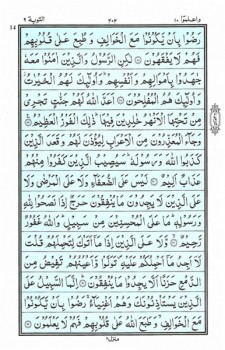 واعلموا ١٠ ٢٠٢ التوبة ٩
رَضُوا بِاَنْ يَّكُوْنُوْا مَعَ الْخَوَالِفِ وَ طُبِعَ عَلٰى قُلُوْبِهِمْ
فَهُمْ لَا يَفْقَهُوْنَ لٰكِنِ الرَّسُوْلُ وَ الَّذِيْنَ اٰمَنُوْا مَعَهٗ
جٰهَدُوْا بِاَمْوَالِهِمْ وَ اَنْفُسِهِمْ وَ اُولٰٓئِكَ لَهُمُ الْخَيْرٰتُ
وَ اُولٰٓئِكَ هُمُ الْمُفْلِحُوْنَ اَعَدَّ اللّٰهُ لَهُمْ جَنّٰتٍ تَجْرِيْ
مِنْ تَحْتِهَا الْاَنْهٰرُ خٰلِدِيْنَ فِيْهَا ذٰلِكَ الْفَوْزُ الْعَظِيْمُ
وَ جَآءَ الْمُعَذِّرُوْنَ مِنَ الْاَعْرَابِ لِيُؤْذَنَ لَهُمْ وَ قَعَدَ الَّذِيْنَ
كَذَبُوا اللّٰهَ وَ رَسُوْلَهٗ سَيُصِيْبُ الَّذِيْنَ كَفَرُوْا مِنْهُمْ
عَذَابٌ اَلِيْمٌ لَيْسَ عَلَى الضُّعَفَآءِ وَ لَا عَلَى الْمَرْضٰى وَ لَا
عَلَى الَّذِيْنَ لَا يَجِدُوْنَ مَا يُنْفِقُوْنَ حَرَجٌ اِذَا نَصَحُوْا لِلّٰهِ
وَ رَسُوْلِهٖ مَا عَلَى الْمُحْسِنِيْنَ مِنْ سَبِيْلٍ وَ اللّٰهُ غَفُوْرٌ
رَّحِيْمٌ وَّ لَا عَلَى الَّذِيْنَ اِذَا مَآ اَتَوْكَ لِتَحْمِلَهُمْ قُلْتَ
لَآ اَجِدُ مَآ اَحْمِلُكُمْ عَلَيْهِ تَوَلَّوْا وَّ اَعْيُنُهُمْ تَفِيْضُ مِنَ
الدَّمْعِ حَزَنًا اَلَّا يَجِدُوْا مَا يُنْفِقُوْنَ اِنَّمَا السَّبِيْلُ عَلَى
الَّذِيْنَ يَسْتَاْذِنُوْنَكَ وَ هُمْ اَغْنِيَآءُ رَضُوْا بِاَنْ يَّكُوْنُوْا
مَعَ الْخَوَالِفِ وَ طَبَعَ اللّٰهُ عَلٰى قُلُوْبِهِمْ فَهُمْ لَا يَعْلَمُوْنَ
منزل ٢